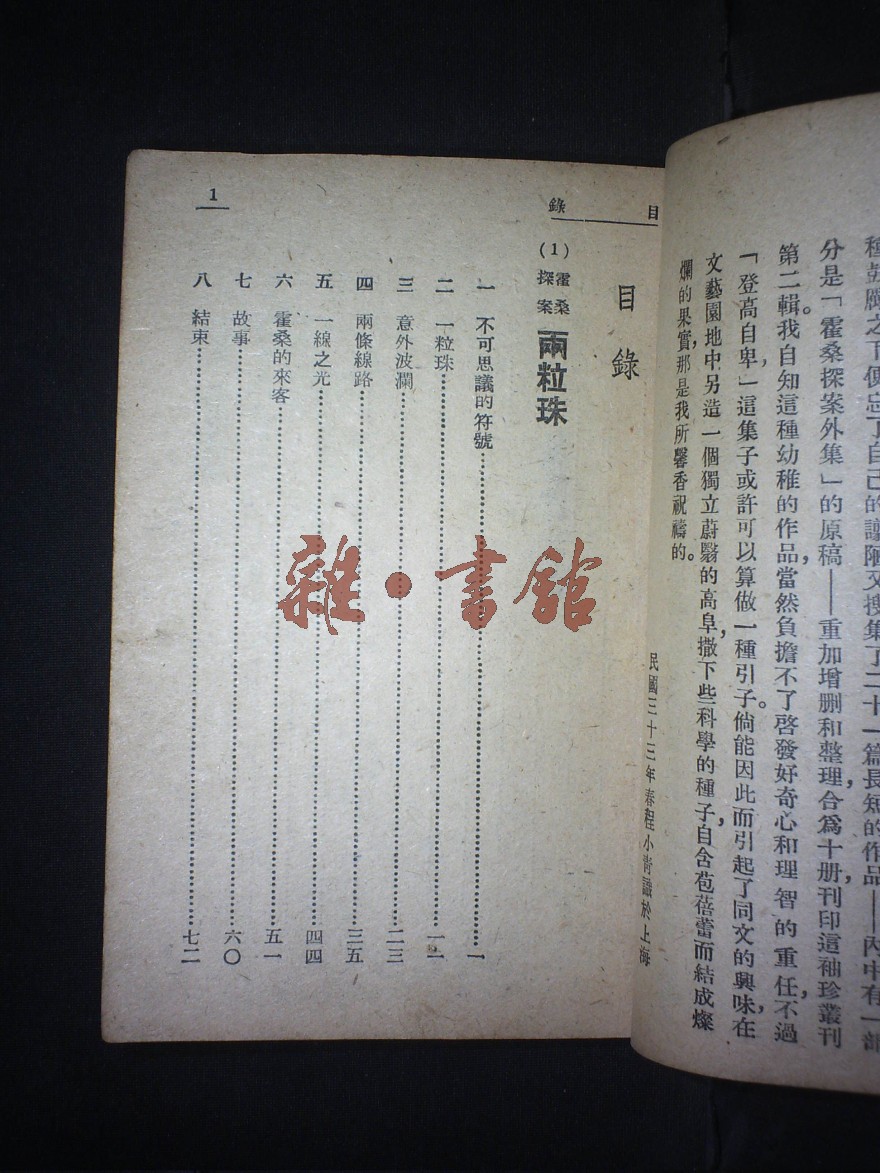 種鼓勵之下便忘了自己的譾陋又搜集了二十一篇長短的作品——內中有一部
分是「霍桑探案外集」的原稿——重加增删和整理，合爲十册刊印這袖珍叢刊
第二輯。我自知這種幼稚的作品，當然負擔不了啓發好奇心和理智的重任，不過
「登高自卑」，這集子或許可以算做一種引子。倘能因此而引起了同文的興味，在
文藝園地中另造一個獨立蔚翳的高阜，撒下些科學的種子，自含苞蓓蕾而結成燦
爛的果實，那是我所馨香祝禱的。
民國三十三年春程小青識於上海
目錄
1
目錄
(1) 霍桑探案 兩粒珠
一 不可思議的符號…………一
二 一粒珠…………一二
三 意外波瀾…………二三
四 兩條線路…………三五
五 一線之光…………四四
六 霍桑的來客…………五一
七 故事…………六〇
八 結束…………七二
雜·書館